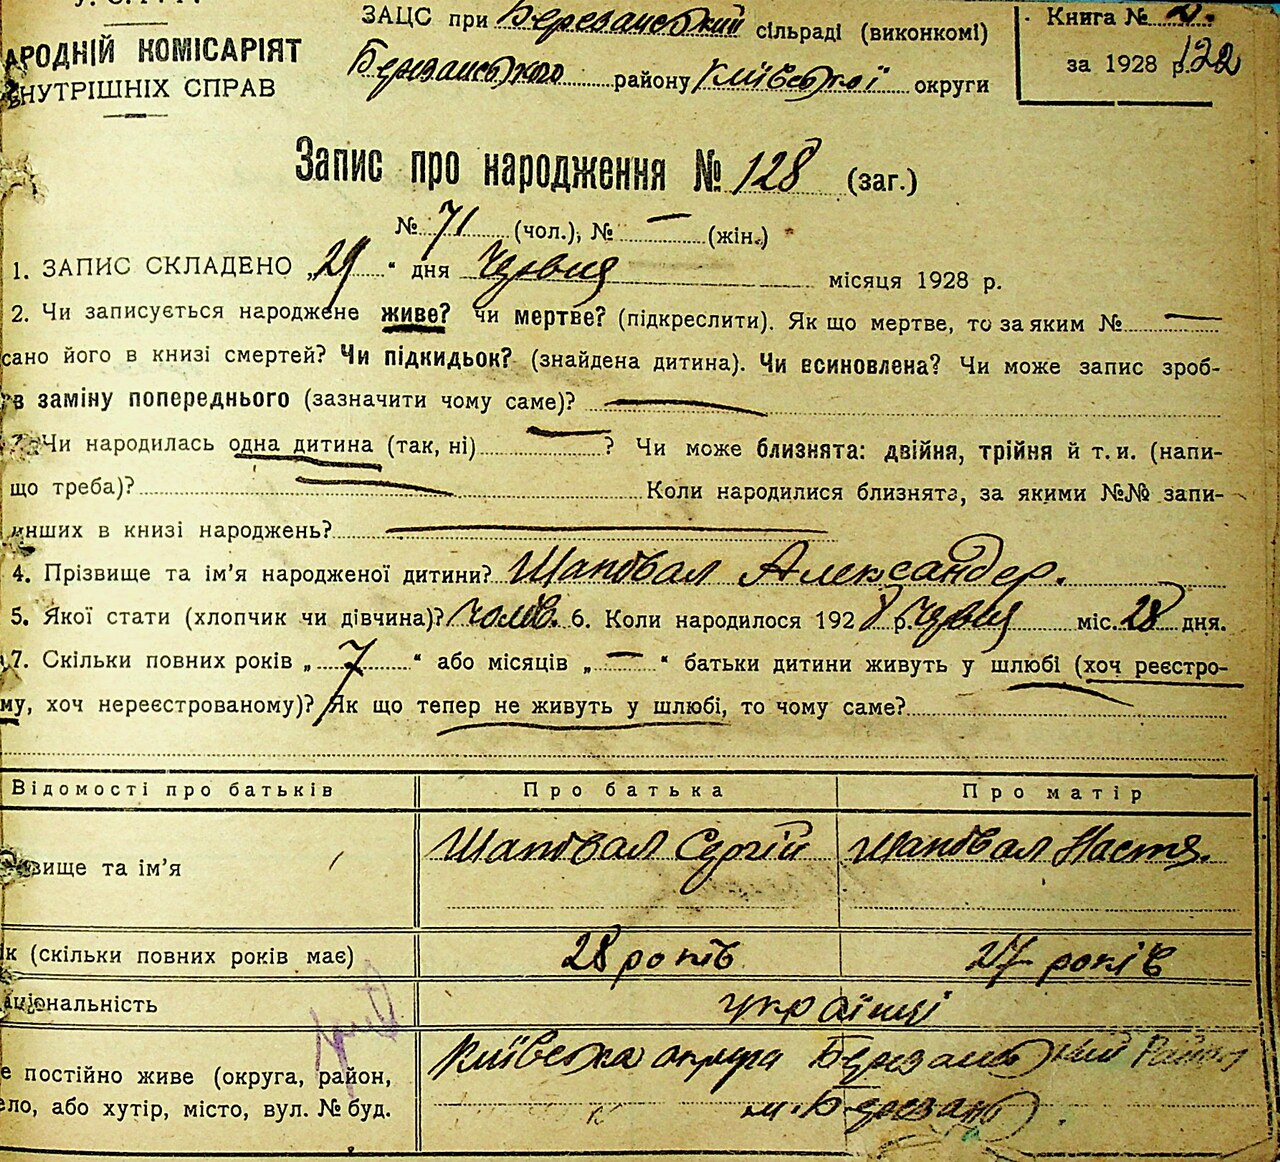 ЗАЦС при Березанський сільраді (виконкомі)
Березанського району Київської округи
Книга № 2.
за 1928 р. 122
АРОДНІЙ КОМІСАРІЯТ
ВНУТРІШНІХ СПРАВ
Запис про народження № 128 (заг.)
№ 71 (чол.), № — (жін.)
1. ЗАПИС СКЛАДЕНО „29“ дня Червня місяця 1928 р.
2. Чи записується народжене живе? чи мертве? (підкреслити). Як що мертве, то за яким № —
сано його в книзі смертей? Чи підкидьок? (знайдена дитина). Чи всиновлена? Чи може запис зроб-
в заміну попереднього (зазначити чому саме)? —
Чи народилась одна дитина (так, ні) — ? Чи може близнята: двійня, трійня й т. и. (напи-
що треба)? — Коли народилися близнята, за якими №№ запи-
инших в книзі народжень? —
4. Прізвище та ім’я народженої дитини? Шаповал Александер.
5. Якої стати (хлопчик чи дівчина)? Чолов. 6. Коли народилося 1928 р. Червня міс. 28 дня.
7. Скільки повних років „ 7 “ або місяців „ — “ батьки дитини живуть у шлюбі (хоч реєстро-
му, хоч нереєстрованому)? Як що тепер не живуть у шлюбі, то чому саме?
Відомості про батьків Про батька Про матір
вище та ім’я Шаповал Сергій Шаповал Настя.
ік (скільки повних років має) 28 років 27 років
аціональність українці
е постійно живе (округа, район, Київська округа Березанський Район
ело, або хутір, місто, вул. № буд. м. Березань